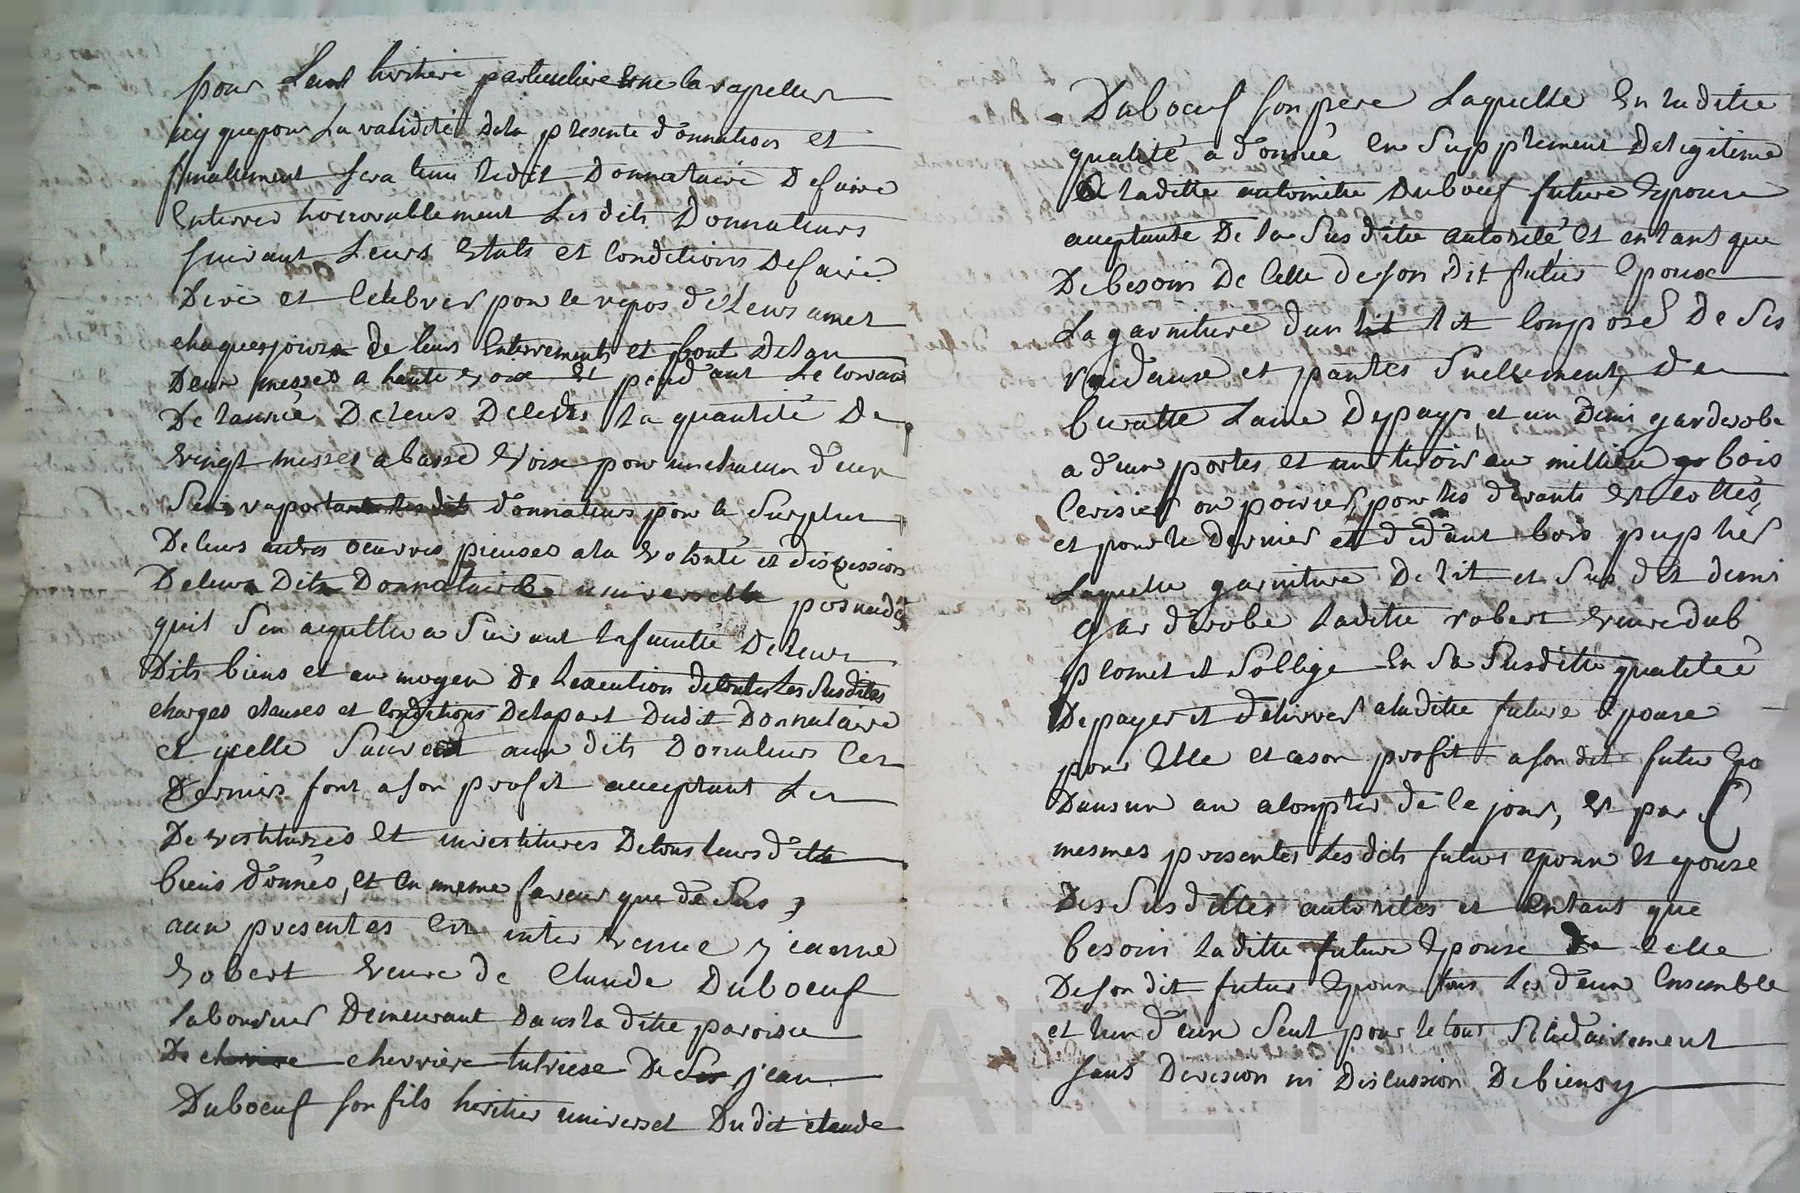 pour Leur hiritiere particuliere ne la rapeller
icy que pour La validité dela presente d'onnation et
finallement sera tenu ledit Donnataire De faire
Enterrer honnorablement Lesdits Donnateurs
suivant Leurs Etats et Conditions De faire
Dire et Celebrer pour le repos de Leurs ames
chaques jours de leurs Enterrements et bout delan
Deux messes a haute voix Et pend'ant Le courant
De lannée De leurs Deledes La quantité De
vingt messes a basse Voix pour un chacun d'eux
Sen raportant lesdits d'onnateurs pour le Surplus
De leurs autres oeuvres pieuses ala volonté et discression
De leur Dit Donnataire universelle
quil Sen aquittera Suivant la faculté De leurs
Dits biens et au moyen De Lexecution de toutes Les Susdites
charges clauses et conditions Delapart Dudit Donnataire
et ycelle aux dits Donateurs Ces
Derniers font a son profit acceptant Les
De vestitures et investitures De tous leurs d'itte
biens d'onnés, et en meme faveur que dé Sus
aux presentes Est inter venue jeanne
Robert veuve de Claude Duboeuf
Laboureur Demeurant Dans la ditte paroisse
De cherriere tutriese De jean
Duboeuf son fils heritier universel Du dit claude
Duboeuf son pere Laquelle En la ditte
qualité a d'onnée en Supplement De legitime
a laditte Duboeuf future Epouse
acceptante De la Sus ditte autorité et en tant que
De besoin De Celle de son dit futur Epoux
La garniture d'un lit Composé De Ses
rideause et pantes Suellement, De
buratte Laine De pays, et un Demi garderobe
a d'eux portes et un tiroir au millieu bois
Cerisier ou poirier, pour les d'evants Et Cottés,
et pour le Dernier et d'id'ant bois puplier
Laquelle garniture De lit et Sus dit demi
Gar d'erobe laditte robert veuve dub
promet et Sollige En Sa Susditte qualitée
De payer et délivrer a laditte future Epouse
pour Elle et a son profit a son dit futur Epo
Dans un an a Compter dé Ce jour, Et par C
mesmes presentes Les dits futurs epoux Et epouse
Des Susdittes autorites et Entant que
besoin laditte future Epouse De Celle
De son dit futur Epoux tous Les d'eux Ensemble
et lun d'eux Seul pour le tout Solidairement
sans Devision ni Discussion De biens y